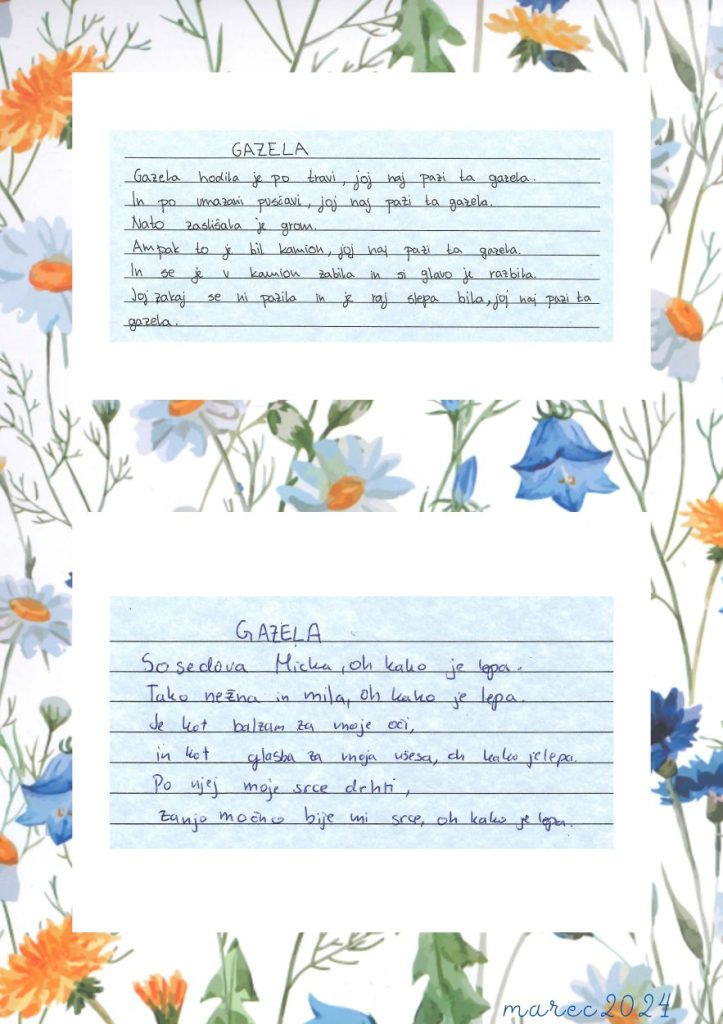 GAZELA
Gazela hodila je po travi, joj naj pazi ta gazela.
In po umazani puščavi, joj naj pazi ta gazela.
Nato zaslišala je grom.
Ampak to je bil kamion, joj naj pazi ta gazela.
In se je v kamion zabila in si glavo je razbila.
Joj zakaj se ni pazila in je raj slepa bila, joj naj pazi ta
gazela.
GAZELA
Sosedova Micka, oh kako je lepa.
Tako nežna in mila, oh kako je lepa.
Je kot balzam za moje oči,
in kot glasba za moja ušesa, oh kako je lepa.
Po njej moje srce drhti,
zanjo močno bije mi srce, oh kako je lepa.
marec 2024